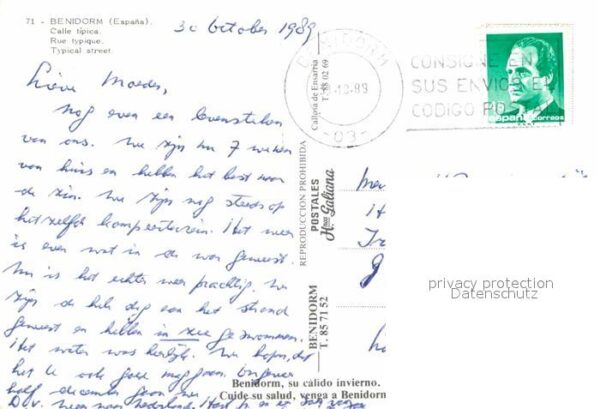 71 - BENIDORM (España).
Calle típica.
Rue typique.
Typical street.
30 October 1989
Lieve Moeder,
Nog even een levensteken
van ons. We zijn nu 7 weken
van huis en hebben het best naar
de zin. We zijn nog steeds op
hetzelfde kampeerterrein. Het weer
is even wat in de war geweest.
Nu is het echter weer prachtig. We
zijn de hele dag aan het strand
geweest en hebben in zee gezwommen.
Het water was heerlijk. We hopen, dat
het U ook goed mag gaan.
half december gaan we
D.V. weer naar Nederland.
Calloria de Ensarria
T. 88 02 69
REPRODUCCIÓN PROHIBIDA
POSTALES
Hnos Galiana
BENIDORM
T. 85 71 52
BENIDORM
10-89
03
CONSIGNE EN
SUS ENVIOS EL
CODIGO POSTA
españa correos
Mev
H
J
privacy protection
Datenschutz
Benidorm, su cálido invierno.
Cuide su salud, venga a Benidorm